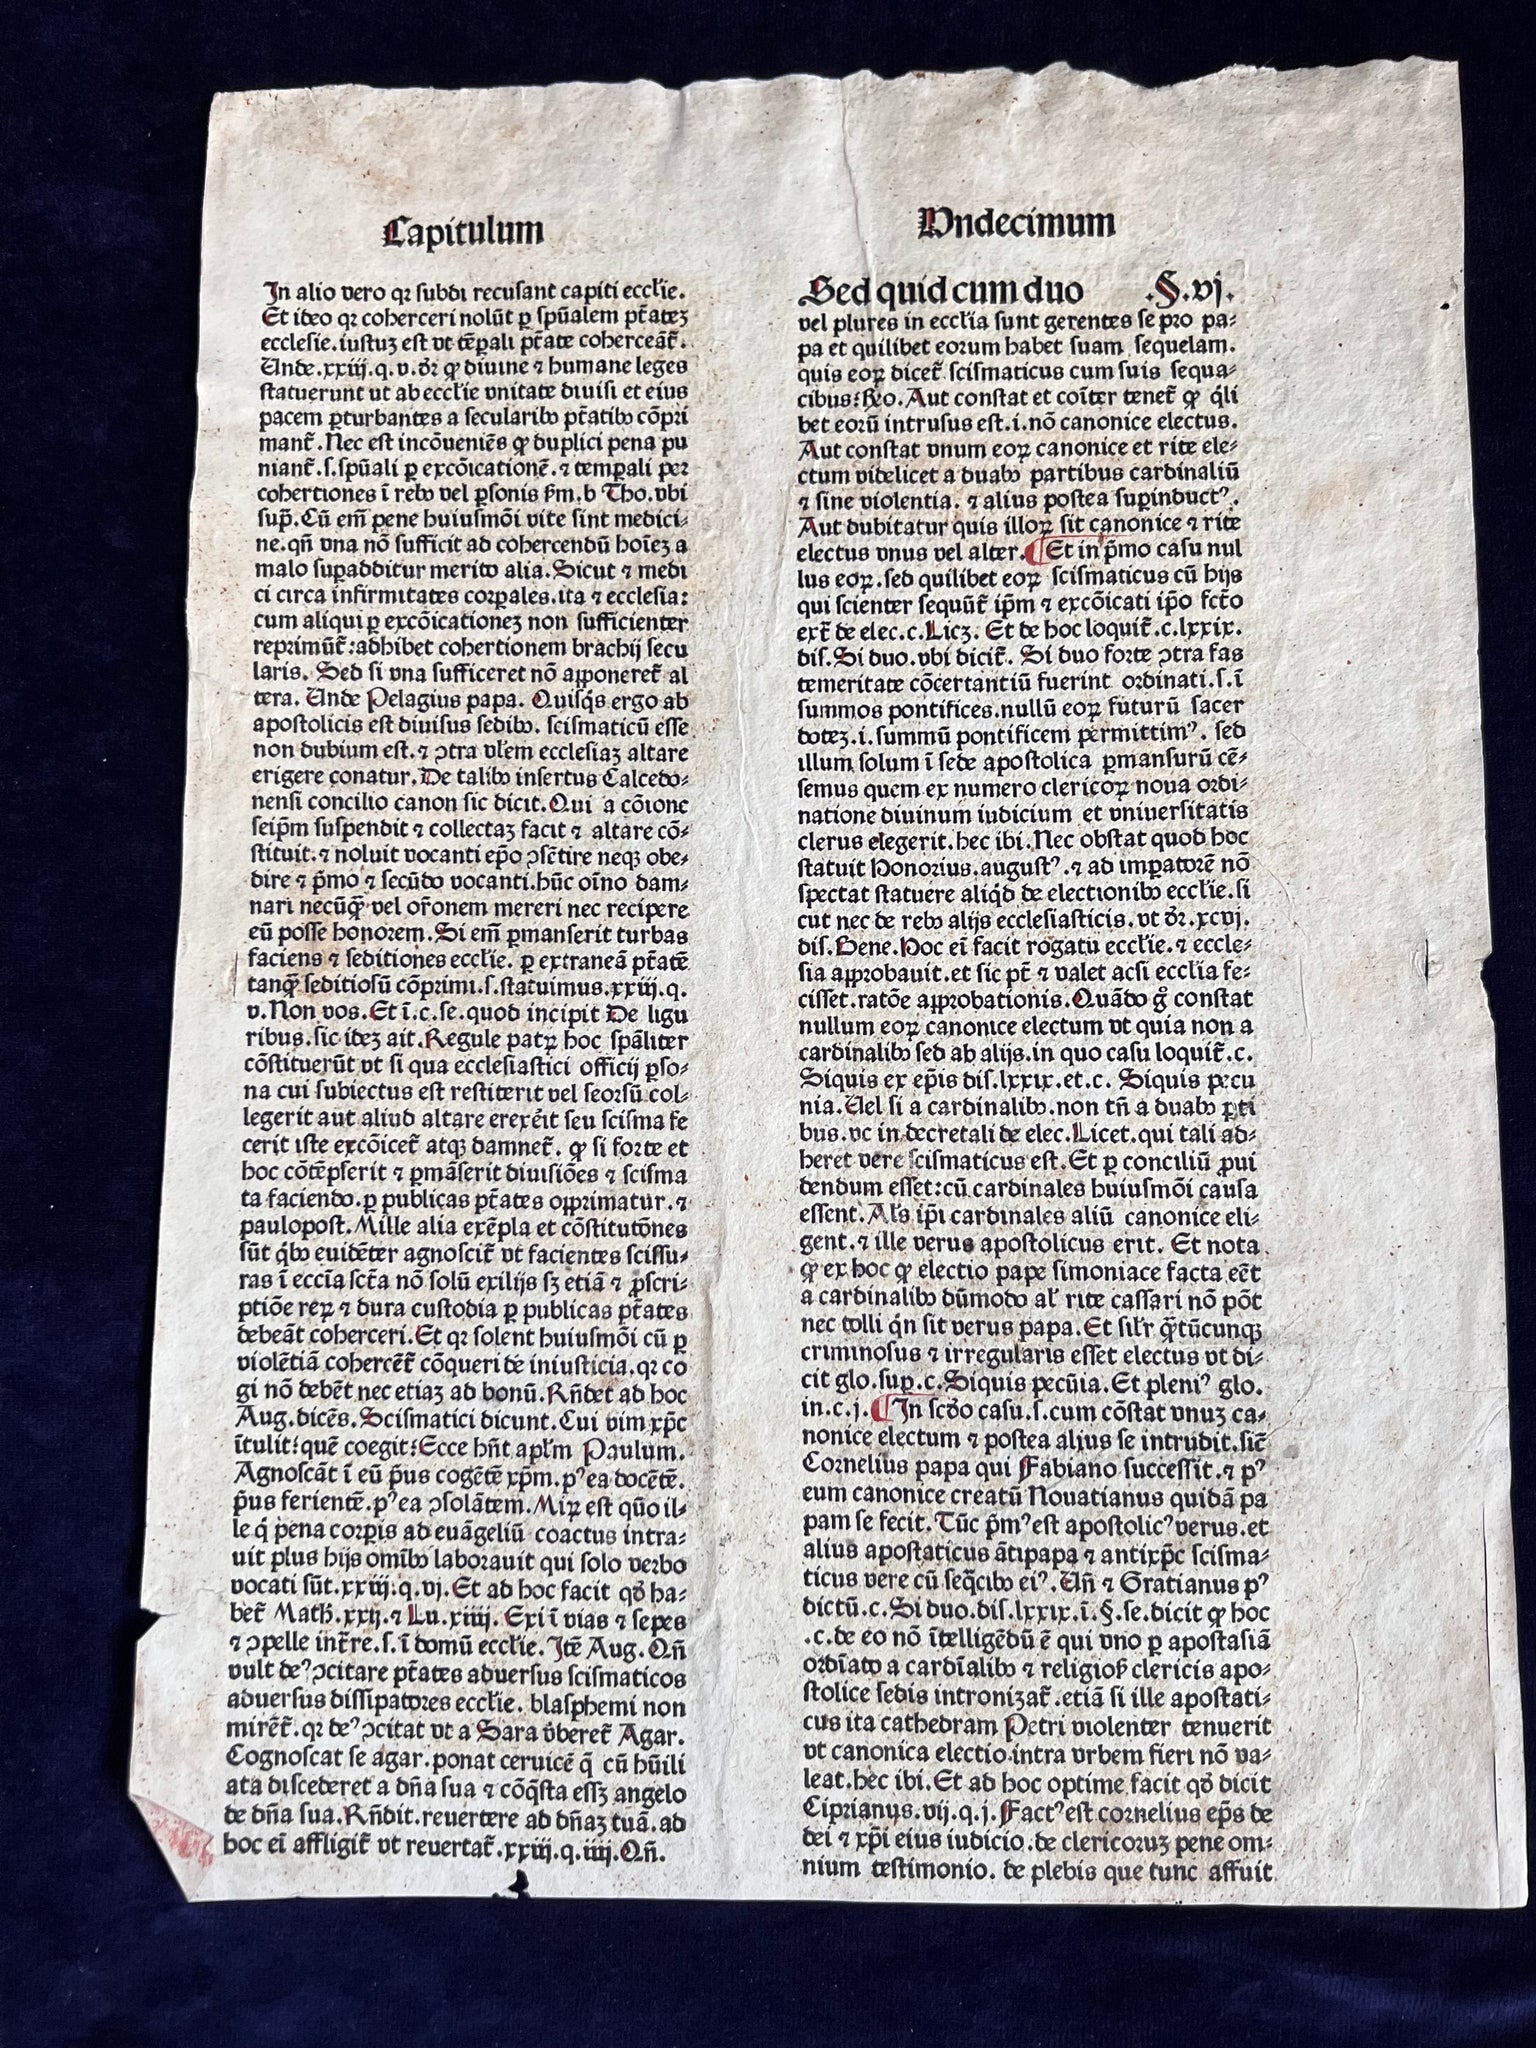 Capitulum
In alio vero qꝛ ſubdi recuſant capiti eccl̄ie.
Et ideo qꝛ coherceri nolūt ꝑ ſpūalem ptātez
eccleſie. iuſtuz eſt vt tēꝑali ptāte coherceāt̄.
Unde .xxiij. q. v. dꝛ̄ ꝙ diuine ⁊ humane leges
ſtatuerunt ut ab eccl̄ie vnitate diuiſi et eius
pacem ꝑturbantes a ſecularibꝰ ptātibꝰ cōpri
mant̄. Nec eſt incōueniēs ꝙ duplici pena pu
niant̄. ſ. ſpūali ꝑ excōicationē. ⁊ temꝑali per
cohertiones ī rebꝰ vel ꝑſonis ẜm. b Tho. vbi
ſup̄. Cū em̄ pene huiuſmōi vite ſint medici⸗
ne. qn̄ vna nō ſufficit ad cohercendū hoīez a
malo ſuꝑadditur merito alia. Sicut ⁊ medi
ci circa infirmitates corꝑales. ita ⁊ eccleſia:
cum aliqui ꝑ excōicationez non ſufficienter
reprimūt̄: adhibet cohertionem brachij ſecu
laris. Sed ſi vna ſufficeret nō apponeret̄ al
tera. Unde Pelagius papa. Quiſqͥs ergo ab
apoſtolicis eſt diuiſus ſedibꝰ. ſciſmaticū eſſe
non dubium eſt. ⁊ ꝯtra vl̄em eccleſiaz altare
erigere conatur. De talibꝰ inſertus Calcedo⸗
nenſi concilio canon ſic dicit. Qui a cōione
ſeip̄m ſuſpendit ⁊ collectaz facit ⁊ altare cō⸗
ſtituit. ⁊ noluit vocanti ep̄o ꝯſētire neqꝫ obe⸗
dire ⁊ p̄mo ⁊ ſecūdo vocanti. hūc oīno dam⸗
nari necūꝙ̄ vel or̄onem mereri nec recipere
eū poſſe honorem. Si em̄ ꝑmanſerit turbas
faciens ⁊ ſeditiones eccl̄ie. ꝑ extraneā ptātē
tanꝙ̄ ſeditioſū cōprimi. ſ. ſtatuimus. xxiij. q.
v. Non vos. Et ī. c. ſe. quod incipit De ligu
ribus. ſic idez ait. Regule patꝝ hoc ſpāliter
cōſtituerūt vt ſi qua eccleſiaſtici officij ꝑſo⸗
na cui ſubiectus eſt reſtiterit vel ſeorſū col⸗
legerit aut aliud altare erexēit ſeu ſciſma fe
cerit iſte excōicet̄ atqꝫ damnet̄. ꝙ ſi forte et
hoc cōtēpſerit ⁊ ꝑmāſerit diuiſiōes ⁊ ſciſma
ta faciendo. ꝑ publicas ptātes opprimatur. ⁊
paulopoſt. Mille alia exēpla et cōſtitutōnes
ſūt qͥbꝰ euidēter agnoſcit̄ vt facientes ſciſſu⸗
ras ī eccīa ſctā nō ſolū exilijs ſꝫ etiā ⁊ ꝓſcri⸗
ptiōe reꝝ ⁊ dura cuſtodia ꝑ publicas ptātes
debeāt coherceri. Et qꝛ ſolent huiuſmōi cū ꝑ
violētiā cohercēt̄ cōqueri de iniuſticia. qꝛ co
gi nō debēt nec etiaz ad bonū. Rn̄det ad hoc
Aug. dicēs. Sciſmatici dicunt. Cui vim xp̄c
ītulit: quē coegit: Ecce hn̄t apl̄m Paulum.
Agnoſcāt ī eū p̄us cogētē xp̄m. pꝰ ea docētē.
p̄us ferientē. pꝰ ea ꝯſolātem. Miꝝ eſt quō il⸗
le qͥ pena corꝑis ad euāgeliū coactus intra⸗
uit plus hijs omībꝰ laborauit qui ſolo verbo
vocati ſūt. xxiij: q. vj. Et ad hoc facit qd̄ ha⸗
bet̄ Math̄. xxij. ⁊ Lu. xiiij. Exi ī vias ⁊ ſepes
⁊ ꝯpelle int̄re. ſ. ī domū eccl̄ie. Itē Aug. Qn̄
vult deꝰ ꝯcitare ptātes aduerſus ſciſmaticos
aduerſus diſſipatores eccl̄ie. blaſphemi non
mirēt̄. qꝛ deꝰ ꝯcitat vt a Sara v̄beret̄ Agar.
Cognoſcat ſe agar. ponat ceruicē qͣ cū hūili
ata diſcederet a dn̄a ſua ⁊ cōqͥſta eſſꝫ angelo
de dn̄a ſua. Rn̄dit. reuertere ad dn̄aꝫ tuā. ad
hoc eī affligit̄ vt reuertat̄. xxiij. q. iiij. Qn̄.
Undecimum
Sed quid cum duo .§. vj.
vel plures in eccl̄ia ſunt gerentes ſe pro pa⸗
pa et quilibet eorum habet ſuam ſequelam.
quis eoꝝ dicet̄ ſciſmaticus cum ſuis ſequa⸗
cibus: Rn̄o. Aut conſtat et coīter tenet̄ ꝙ qͥli
bet eorū intruſus eſt. i. nō canonice electus.
Aut conſtat vnum eoꝝ canonice et rite ele⸗
ctum videlicet a duabꝰ partibus cardinaliū
⁊ ſine violentia. ⁊ alius poſtea ſuꝑinductꝰ.
Aut dubitatur quis illoꝝ ſit canonice ⁊ rite
electus vnus vel alter. ¶ Et in p̄mo caſu nul
lus eoꝝ. ſed quilibet eoꝝ ſciſmaticus cū hijs
qui ſcienter ſequūt̄ ip̄m ⁊ excōicati ip̄o fctō
ext̄ de elec. c. Licꝫ. Et de hoc loquit̄. c. lxxix.
diſ. Si duo. vbi dicit̄. Si duo forte ꝯtra fas
temeritate cōcertantiū fuerint ordinati. ſ. ī
ſummos pontifices. nullū eoꝝ futurū ſacer
dotez. i. ſummū pontificem permittimꝰ. ſed
illum ſolum ī ſede apoſtolica ꝑmanſurū cē⸗
ſemus quem ex numero clericoꝝ noua ordi⸗
natione diuinum iudicium et vniuerſitatis
clerus elegerit. hec ibi. Nec obſtat quod hoc
ſtatuit Honorius. auguſtꝰ. ⁊ ad imꝑatorē nō
ſpectat ſtatuere aliqͥd de electionibꝰ eccl̄ie. ſi
cut nec de rebꝰ alijs eccleſiaſticis. vt dꝛ̄. xcvj.
diſ. Bene. Hoc eī facit rogatu eccl̄ie. ⁊ eccle⸗
ſia approbauit. et ſic pt̄ ⁊ valet acſi eccl̄ia fe⸗
ciſſet. ratōe approbationis. Quādo gͦ conſtat
nullum eoꝝ canonice electum vt quia non a
cardinalibꝰ ſed ab alijs. in quo caſu loquit̄. c.
Siquis ex ep̄is diſ. lxxix. et. c. Siquis pecu
nia. Uel ſi a cardinalibꝰ. non tn̄ a duabꝰ ꝑti
bus. vc in decretali de elec. Licet. qui tali ad⸗
heret vere ſciſmaticus eſt. Et ꝑ conciliū ꝓui
dendum eſſet: cū cardinales huiuſmōi cauſa
eſſent. Al̄s ip̄i cardinales aliū canonice eli⸗
gent. ⁊ ille verus apoſtolicus erit. Et nota
ꝙ ex hoc ꝙ electio pape ſimoniace facta eēt
a cardinalibꝰ dūmodo al̄ rite caſſari nō pōt
nec tolli qͥn ſit verus papa. Et ſil̄r ꝙ̄tūcunqꝫ
criminoſus ⁊ irregularis eſſet electus vt di⸗
cit glo. ſup. c. Siquis pecūia. Et pleniꝰ glo.
in. c. j. ¶ In ſcd̄o caſu. ſ. cum cōſtat vnuz ca⸗
nonice electum ⁊ poſtea alius ſe intrudit. ſic̄
Cornelius papa qui Fabiano ſucceſſit. ⁊ pꝰ
eum canonice creatū Nouatianus quidā pa
pam ſe fecit. Tūc p̄mꝰ eſt apoſtolicꝰ verus. et
alius apoſtaticus ātipapa ⁊ antixp̄c ſciſma⸗
ticus vere cū ſeqͣcibꝰ eiꝰ. Un̄ ⁊ Gratianus pꝰ
dictū. c. Si duo. diſ. lxxix. ī. §. ſe. dicit ꝙ hoc
.c. de eo nō ītelligēdū ē qui vno ꝑ apoſtaſiā
ordīato a cardīalibꝰ ⁊ religioſ̄ clericis apo⸗
ſtolice ſedis intronizat̄. etiā ſi ille apoſtati⸗
cus ita cathedram Petri violenter tenuerit
vt canonica electio intra vrbem fieri nō va⸗
leat. hec ibi. Et ad hoc optime facit qd̄ dicit
Ciprianus. vij. q. j. Factꝰ eſt cornelius ep̄s de
dei ⁊ xp̄i eius iudicio. de clericoruz pene om⸗
nium teſtimonio. de plebis que tunc affuit